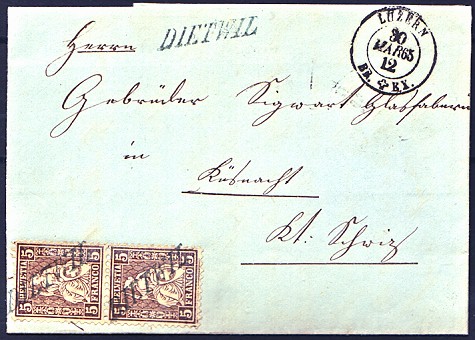 DIETWIL
LUZERN
30
MAR 65
12
BR. EX.
Herrn
Gebrüder Sigwart Glasfabrik
in
Küsnacht
Kt: Schwiz
5 HELVETIA FRANCO 5
5 HELVETIA FRANCO 5
DIETWIL
DIETWIL